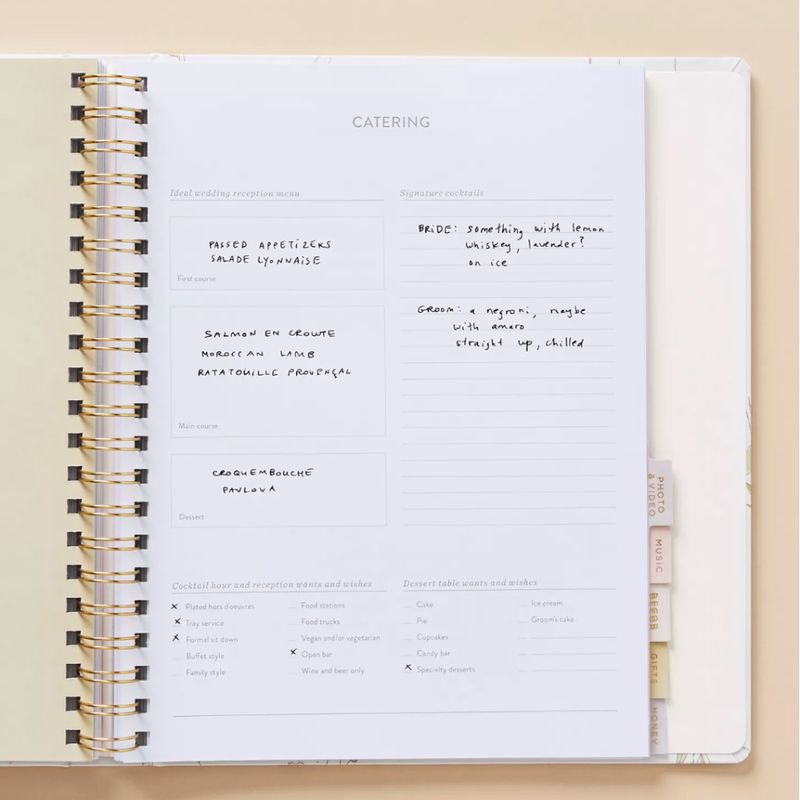 CATERING
Ideal wedding reception menu
PASSED APPETIZERS
SALADE LYONNAISE
First course
SALMON EN CROUTE
MOROCCAN LAMB
RATATOUILLE PROVENÇAL
Main course
CROQUEMBOUCHE
PAVLOVA
Dessert
Signature cocktails
BRIDE: something with lemon
whiskey, lavender?
on ice
GROOM: a negroni, maybe
with amaro
straight up, chilled
Cocktail hour and reception wants and wishes
x Plated hors d'oeuvres
x Tray service
x Formal sit down
Buffet style
Family style
Food stations
Food trucks
Vegan and/or vegetarian
x Open bar
Wine and beer only
Dessert table wants and wishes
Cake
Pie
Cupcakes
Candy bar
x Specialty desserts
Ice cream
Groom's cake
PHOTO
& VIDEO
MUSIC
GIFTS
HONEY